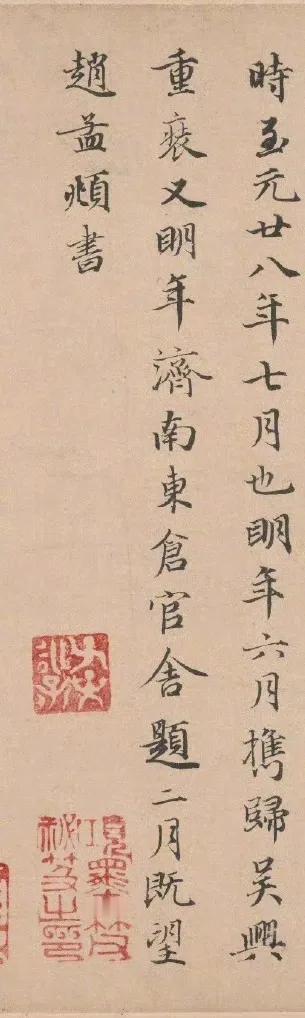 時至元廿八年七月也明年六月攜歸吳興
重裝又明年濟南東倉官舍題二月既望
趙孟頫書
項墨林父
祕笈之印